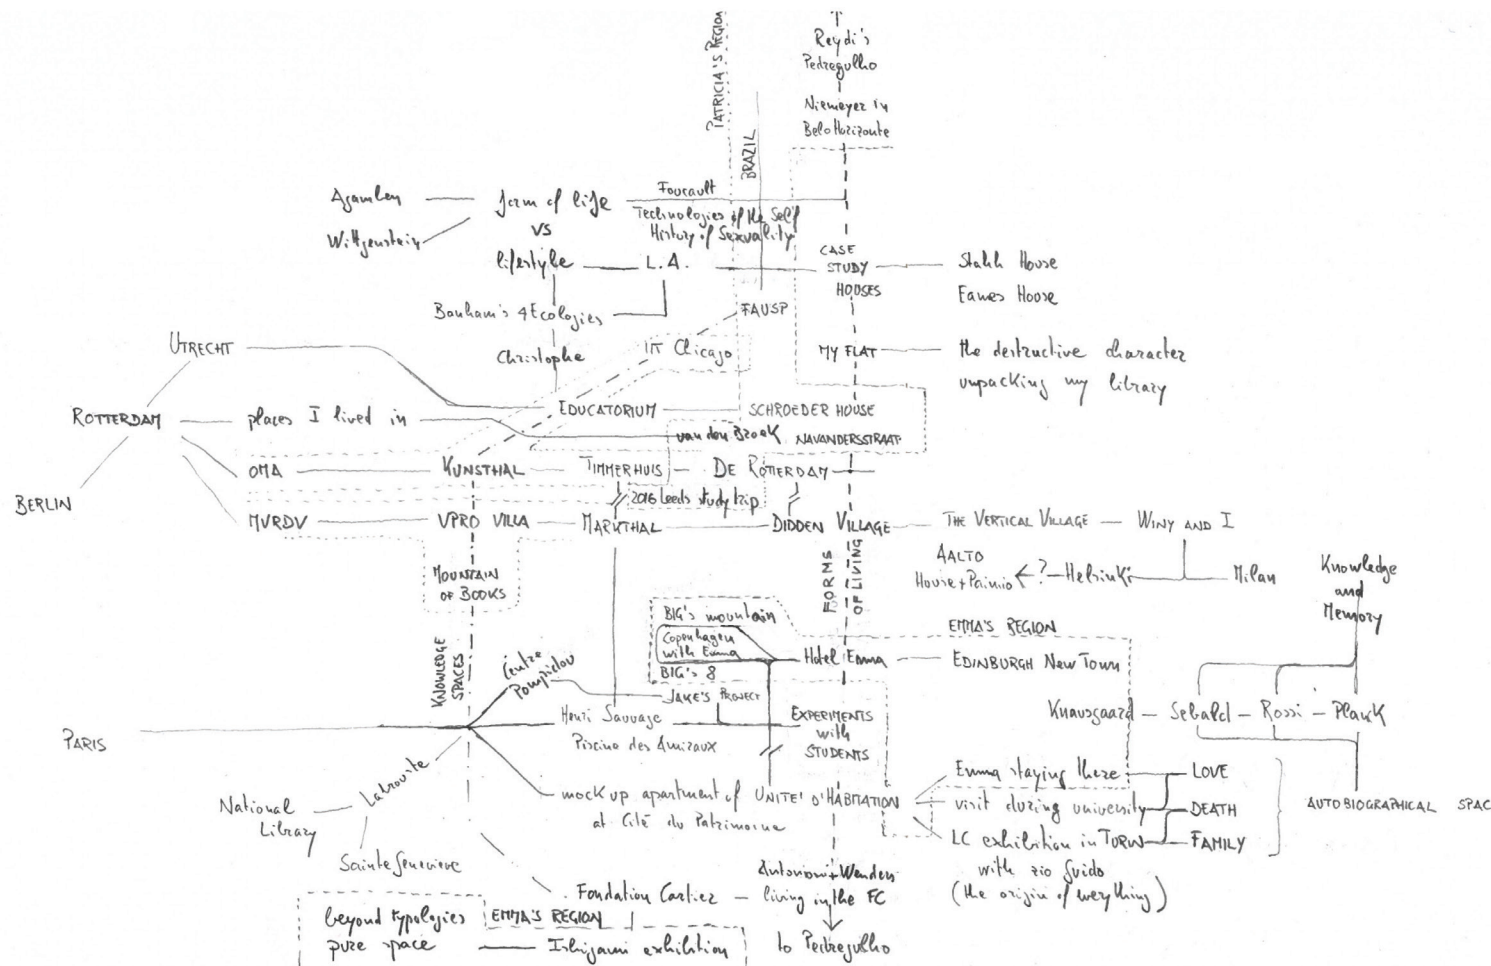 PATRICIA'S REGION
Reydi's
Pedregulho
Niemeyer in
Belo Horizonte
BRAZIL
Agamben
form of life
Foucault
Technologies of the Self
History of Sexuality
Wittgenstein
VS
lifestyle
L.A.
CASE
STUDY
HOUSES
Stahh House
Eames House
Banham's 4 Ecologies
FAUSP
UTRECHT
Christophe
IIT Chicago
MY FLAT
the destructive character
unpacking my library
ROTTERDAM
places I lived in
EDUCATORIUM
SCHROEDER HOUSE
van den Broek
NAVANDERSSTRAAT
OMA
KUNSTHAL
TIMMERHUIS
DE ROTTERDAM
BERLIN
2016 Leeds study trip
MVRDV
VPRO VILLA
MARKTHAL
DIDDEN VILLAGE
THE VERTICAL VILLAGE
WINY AND I
MOUNTAIN
OF BOOKS
FORMS
OF LIVING
AALTO
House + Paimio
?
Helsinki
Milan
Knowledge
and
Memory
BIG's mountain
Copenhagen
with Emma
BIG's 8
Hotel Emma
EMMA'S REGION
EDINBURGH NEW TOWN
KNOWLEDGE
SPACES
Centre
Pompidou
JAKE'S PROJECT
PARIS
Henri Sauvage
Piscine des Amiraux
EXPERIMENTS
with
STUDENTS
Knausgaard
Sebald
Rossi
Planck
Labrouste
National
Library
Sainte Genevieve
mock up apartment of UNITE' D'HABITATION
at Cité du Patrimoine
Emma staying there
visit during university
LC exhibition in TURIN
with zio Guido
(the origin of everything)
LOVE
DEATH
FAMILY
AUTOBIOGRAPHICAL SPAC
Fondation Cartier
Antonioni + Wenders
living in the FC
to Pedregulho
beyond typologies
pure space
EMMA'S REGION
Ishigami exhibition